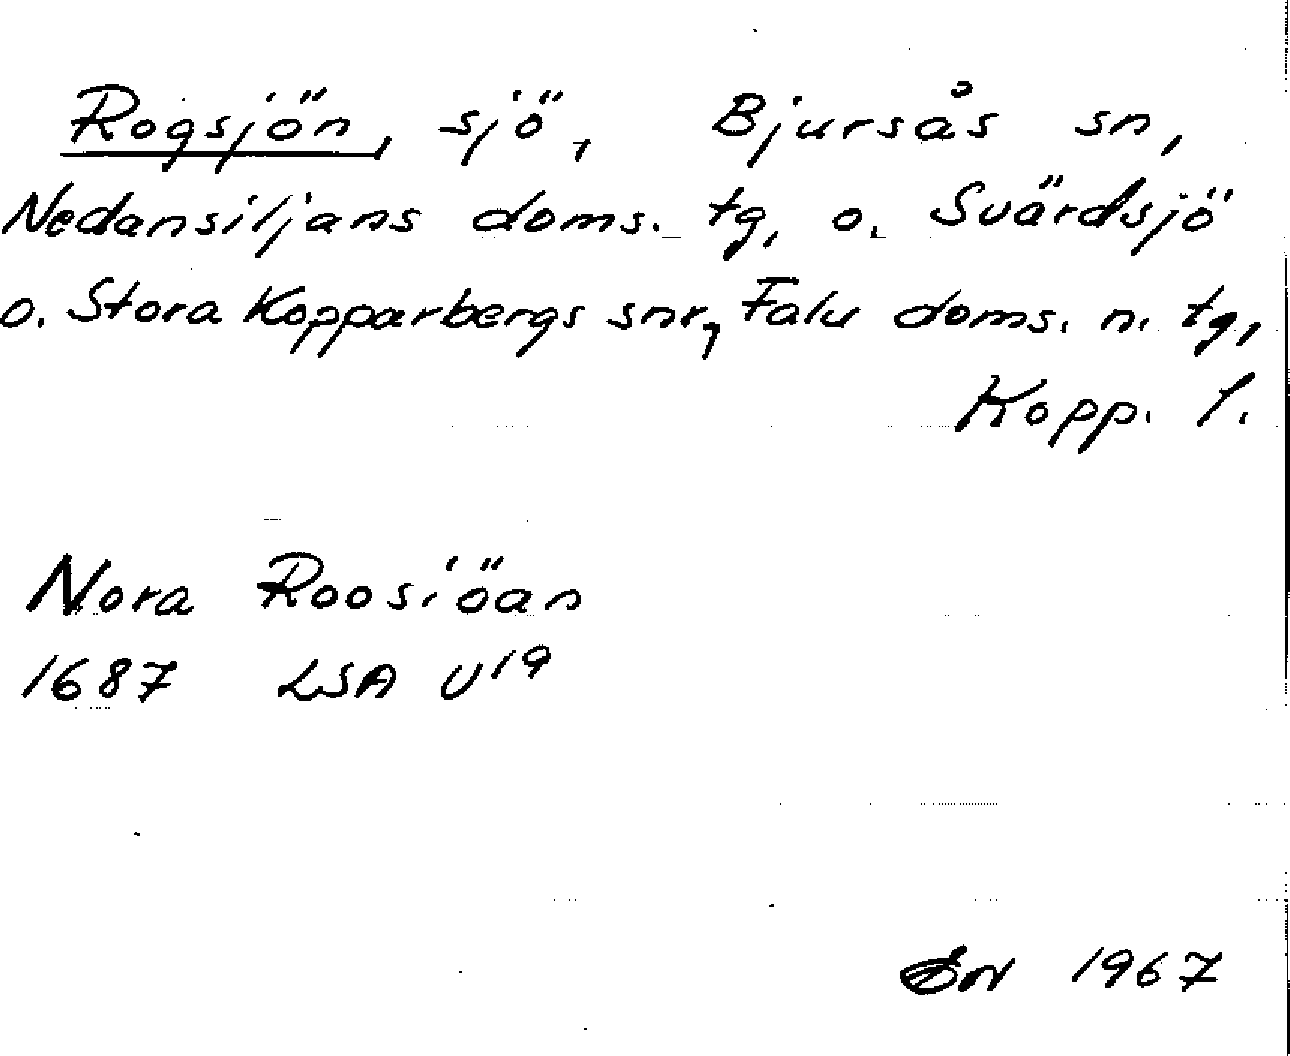 Rogsjön, sjö, Bjursås sn,
Nedansiljans doms. tg, o. Svärdsjö
o. Stora Kopparbergs snr, Falu doms. n. tg,
Kopp. l.
Nora Roosiöan
1687 LSA U19
1967